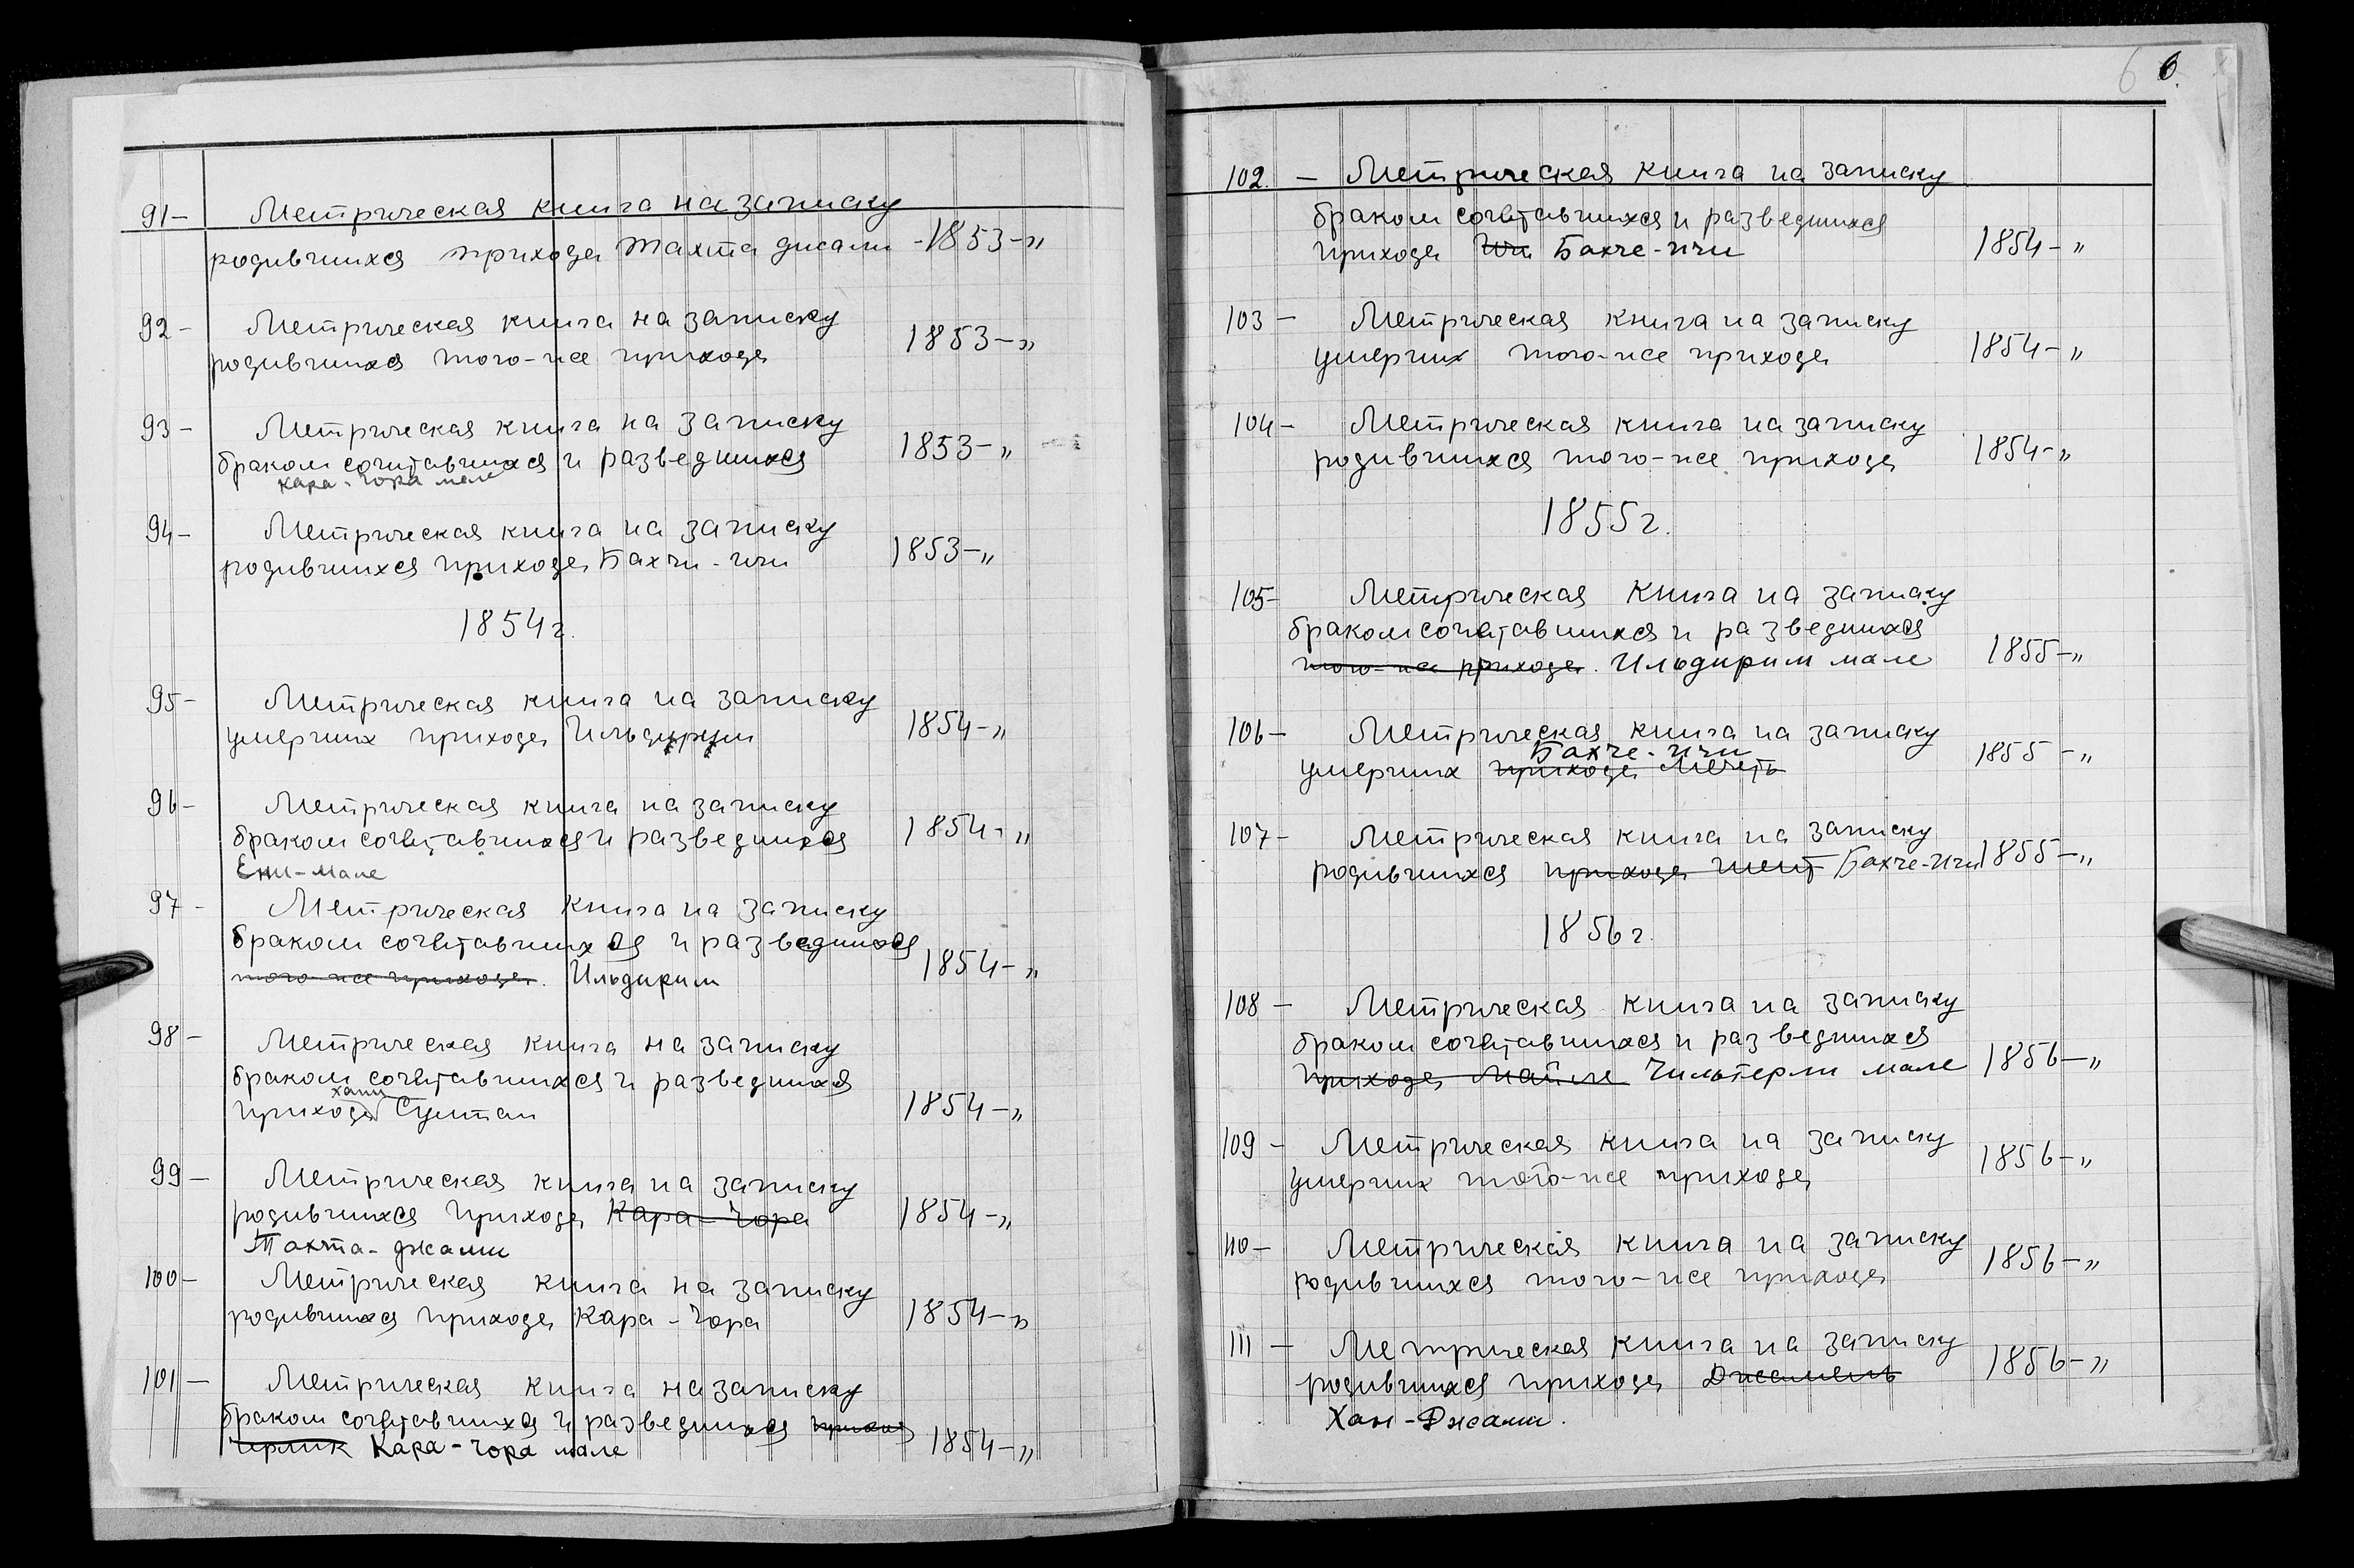 91- Метрическая книга на записку
родившихся прихода Тахта джами -1853-"
92- Метрическая книга на записку
родившихся того-же прихода 1853-"
93- Метрическая книга на записку
браком сочитавшихся и разведшихся 1853-"
Кара-Чора мале
94- Метрическая книга на записку
родившихся прихода Бахчи-Ичи 1853-"
1854г.
95- Метрическая книга на записку
умерших прихода Ильдирим 1854-"
96- Метрическая книга на записку
браком сочетавшихся и разведшихся 1854-"
Ени-Мале
97- Метрическая книга на записку
браком сочетавшихся и разведшихся
того-же прихода. Ильдирим 1854-"
98- Метрическая книга на записку
браком сочетавшихся и разведшихся
хани
прихода Султан 1854-"
99- Метрическая книга на записку
родившихся прихода Кара-Чора 1854-"
Тахта-джами
100- Метрическая книга на записку
родившихся прихода Кара-Чора 1854-"
101- Метрическая книга на записку
браком сочетавшихся и разведшихся
Кара-Чора мале 1854-"
6 6.
102. - Метрическая книга на записку
браком сочетавшихся и разведшихся
прихода Ичи Бахче-Ичи 1854-"
103- Метрическая книга на записку
умерших того-же прихода 1854-"
104- Метрическая книга на записку
родившихся того-же прихода 1854-"
1855г.
105- Метрическая книга на записку
браком сочетавшихся и разведшихся
того-же прихода. Ильдирим мале 1855-"
106- Метрическая книга на записку
Бахче-Ичи
умерших прихода Мечеть 1855-"
107- Метрическая книга на записку
родившихся прихода Бахче-Ичи 1855-"
1856г.
108- Метрическая книга на записку
браком сочетавшихся и разведшихся
прихода Чильтерли мале 1856-"
109- Метрическая книга на записку
умерших того-же прихода 1856-"
110- Метрическая книга на записку
родившихся того-же прихода 1856-"
111- Метрическая книга на записку
родившихся прихода 1856-"
Хан-Джами.